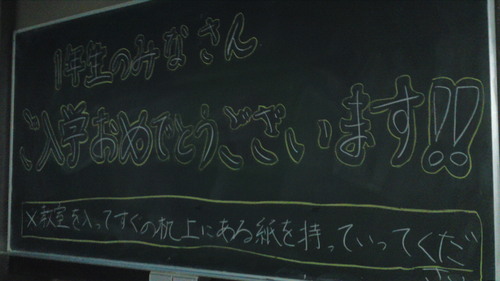 1年生のみなさん
ご入学おめでとうございます!!
※教室を入ってすぐの机上にある紙を持っていってくだ
さい